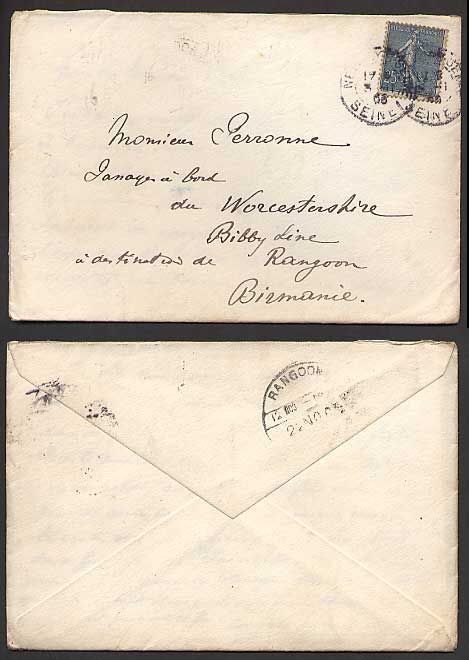 Monsieur Perronne
à bord
du Worcestershire
Bibby Line
à destination de Rangoon
Birmanie.
25
17
SEINE SEINE
RANGOON
12 NOON
22 NO